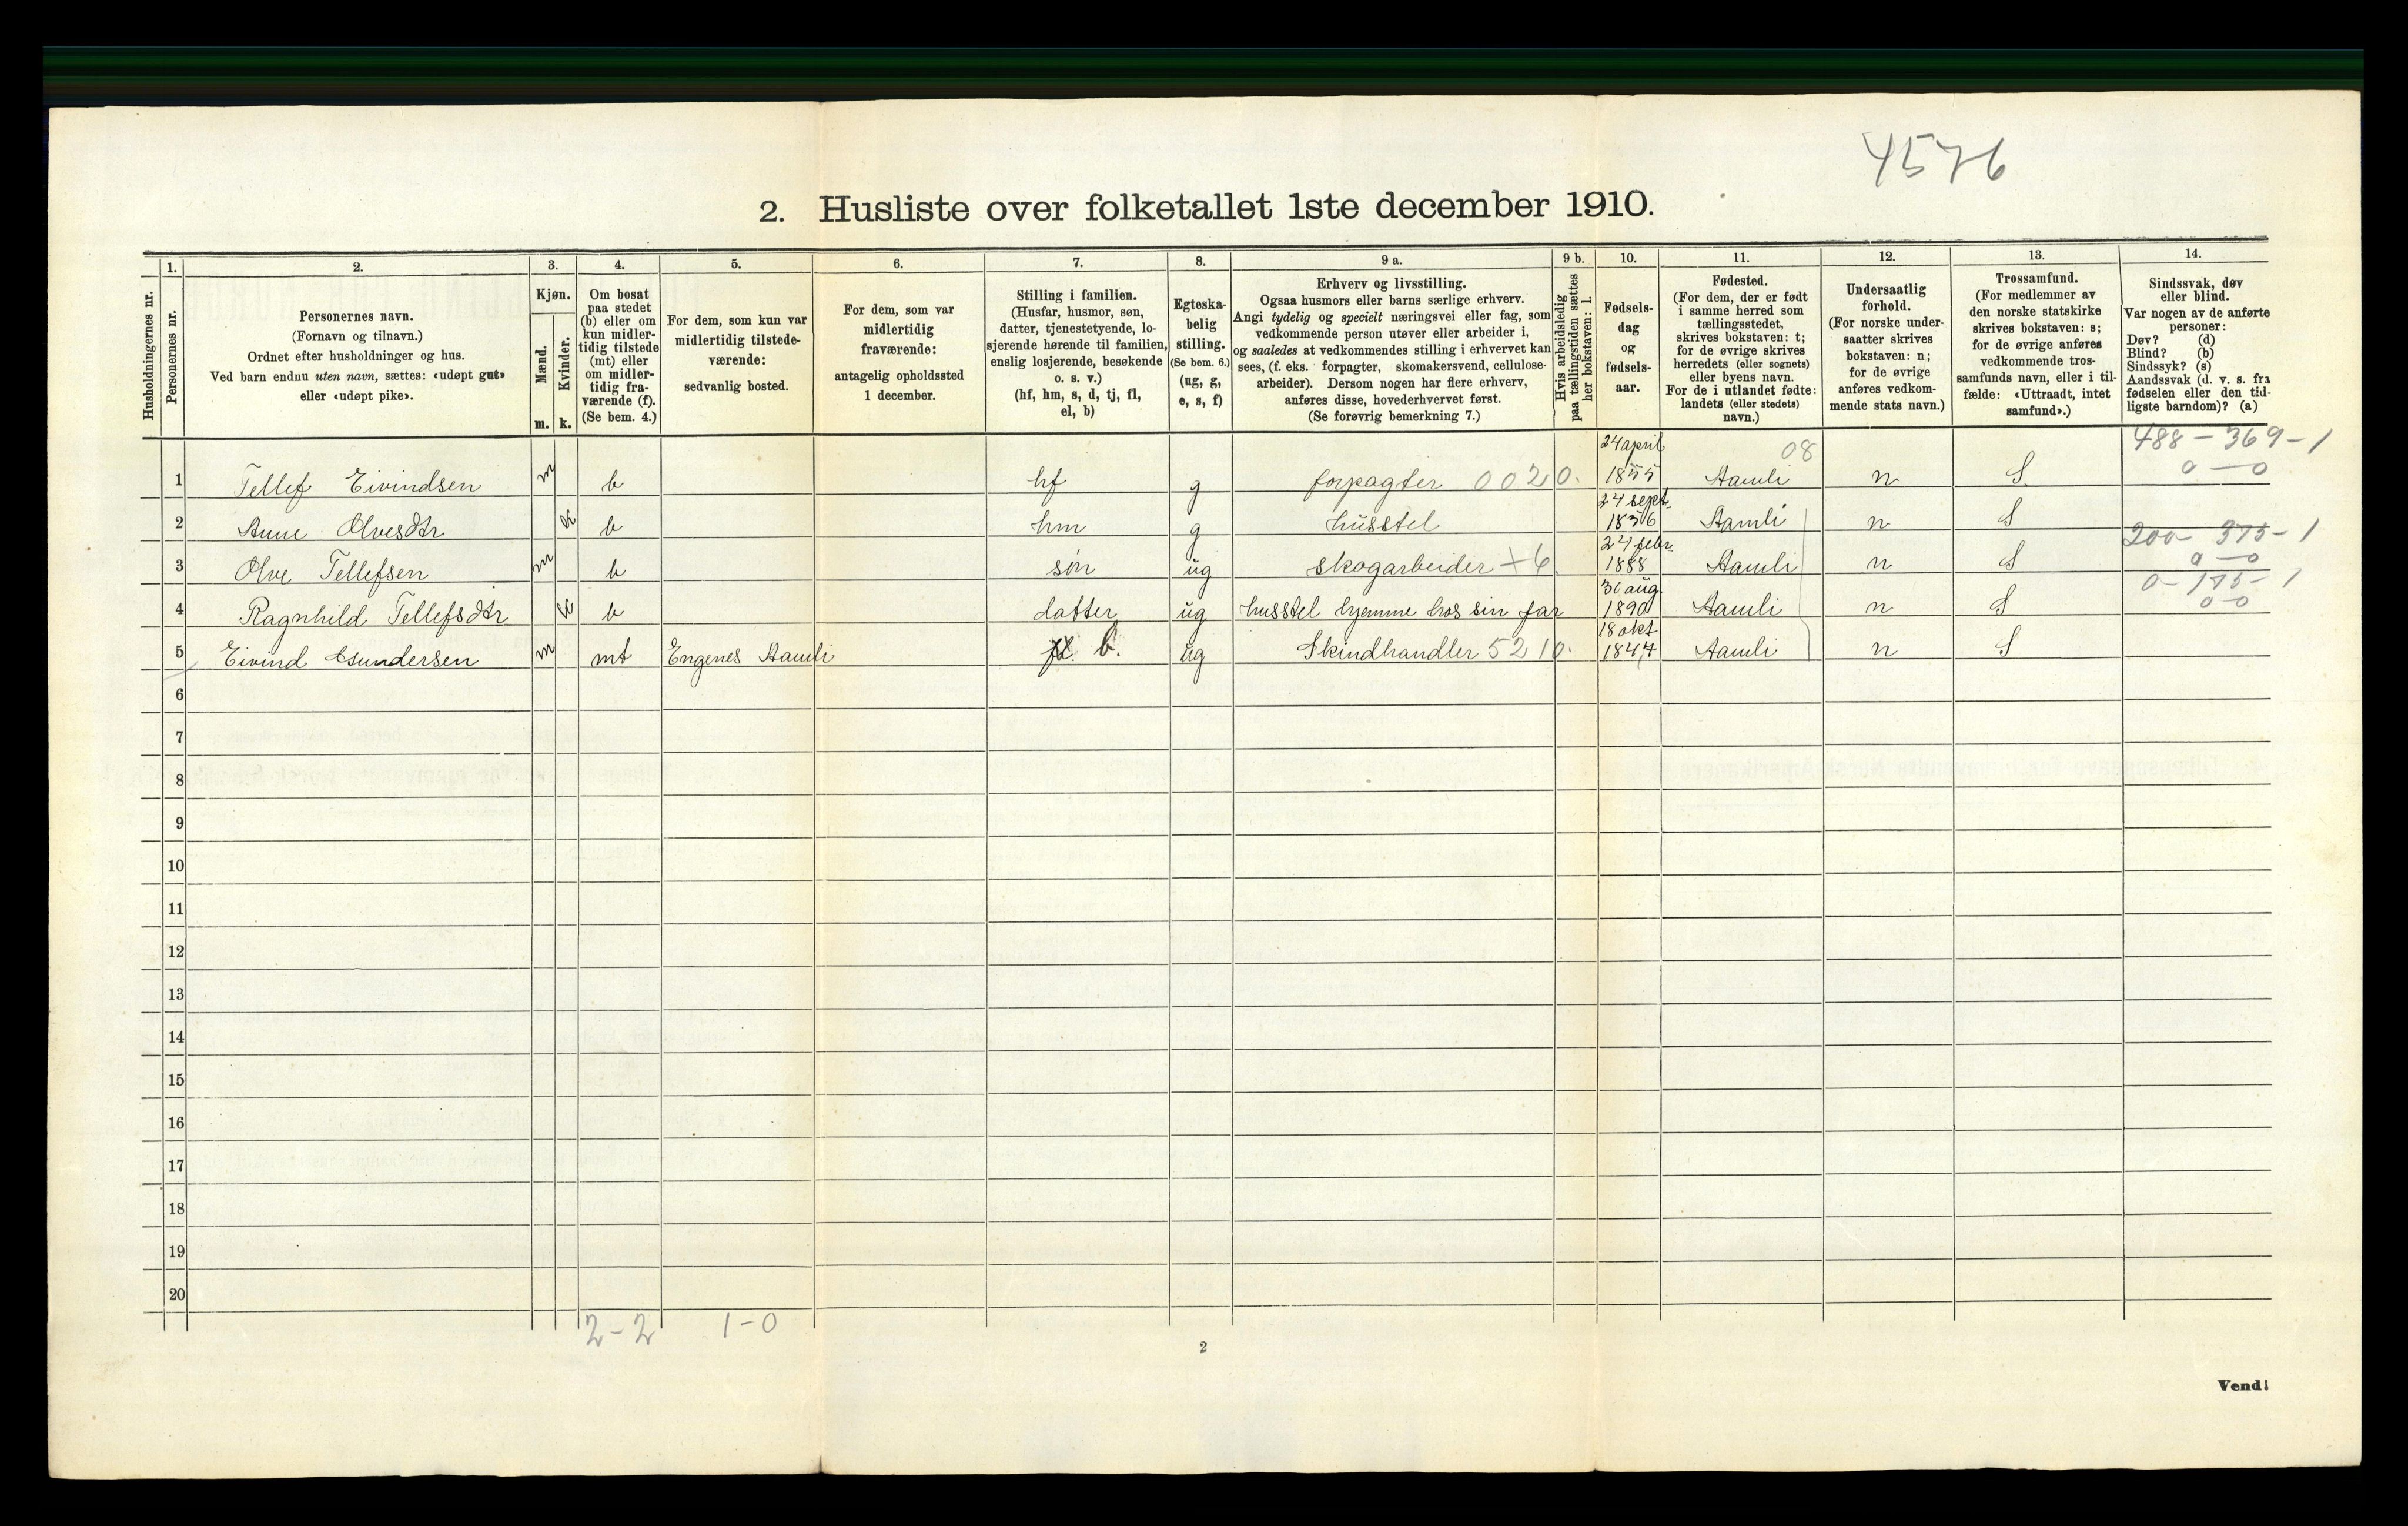 4576
2. Husliste over folketallet 1ste december 1910.
Husholdningernes nr.
1.
Personernes nr.
2.
Personernes navn.
(Fornavn og tilnavn.)
Ordnet efter husholdninger og hus.
Ved barn endnu uten navn, sættes: «udøpt gut»
eller «udøpt pike».
3.
Kjøn.
Mænd.
Kvinder.
m. k.
4.
Om bosat
paa stedet
(b) eller om
kun midler-
tidig tilstede
(mt) eller
om midler-
tidig fra-
værende (f).
(Se bem. 4.)
5.
For dem, som kun var
midlertidig tilstede-
værende:
sedvanlig bosted.
6.
For dem, som var
midlertidig
fraværende:
antagelig opholdssted
1 december.
7.
Stilling i familien.
(Husfar, husmor, søn,
datter, tjenestetyende, lo-
sjerende hørende til familien,
enslig losjerende, besøkende
o. s. v.)
(hf, hm, s, d, tj, fl,
el, b)
8.
Egteska-
belig
stilling.
(Se bem. 6.)
(ug, g,
e, s, f)
9 a.
Erhverv og livsstilling.
Ogsaa husmors eller barns særlige erhverv.
Angi tydelig og specielt næringsvei eller fag, som
vedkommende person utøver eller arbeider i,
og saaledes at vedkommendes stilling i erhvervet kan
sees, (f. eks. forpagter, skomakersvend, cellulose-
arbeider). Dersom nogen har flere erhverv,
anføres disse, hovederhvervet først.
(Se forøvrig bemerkning 7.)
9 b.
Hvis arbeidsledig
paa tællingstiden sættes
her bokstaven: l.
10.
Fødsels-
dag
og
fødsels-
aar.
11.
Fødested.
(For dem, der er født
i samme herred som
tællingsstedet,
skrives bokstaven: t;
for de øvrige skrives
herredets (eller sognets)
eller byens navn.
For de i utlandet fødte:
landets (eller stedets)
navn.)
12.
Undersaatlig
forhold.
(For norske under-
saatter skrives
bokstaven: n;
for de øvrige
anføres vedkom-
mende stats navn.)
13.
Trossamfund.
(For medlemmer av
den norske statskirke
skrives bokstaven: s;
for de øvrige anføres
vedkommende tros-
samfunds navn, eller i til-
fælde: «Uttraadt, intet
samfund».)
14.
Sindssvak, døv
eller blind.
Var nogen av de anførte
personer:
Døv? (d)
Blind? (b)
Sindssyk? (s)
Aandssvak (d. v. s. fra
fødselen eller den tid-
ligste barndom)? (a)
24 april 08 488-369-1
1 Tellef Eivindsen m b hf g forpagter 0020. 1855 Aamli n S 0-0
24 sept.
2 Anne Olvesdtr k b hm g husstel 1856 Aamli n S
24 febr. 200-375-1
3 Olve Tellefsen m b søn ug skogarbeider +6 1888 Aamli n S 0-0
30 aug. 0-175-1
4 Ragnhild Tellefsdtr k b datter ug husstel hjemme hos sin far 1890 Aamli n S 0-0
18 okt
5 Eivind Gundersen m mt Engenes Aamli b. ug Skindhandler 5210. 1847 Aamli n S
6
7
8
9
10
11
12
13
14
15
16
17
18
19
20
2-2 1-0
2
Vend!